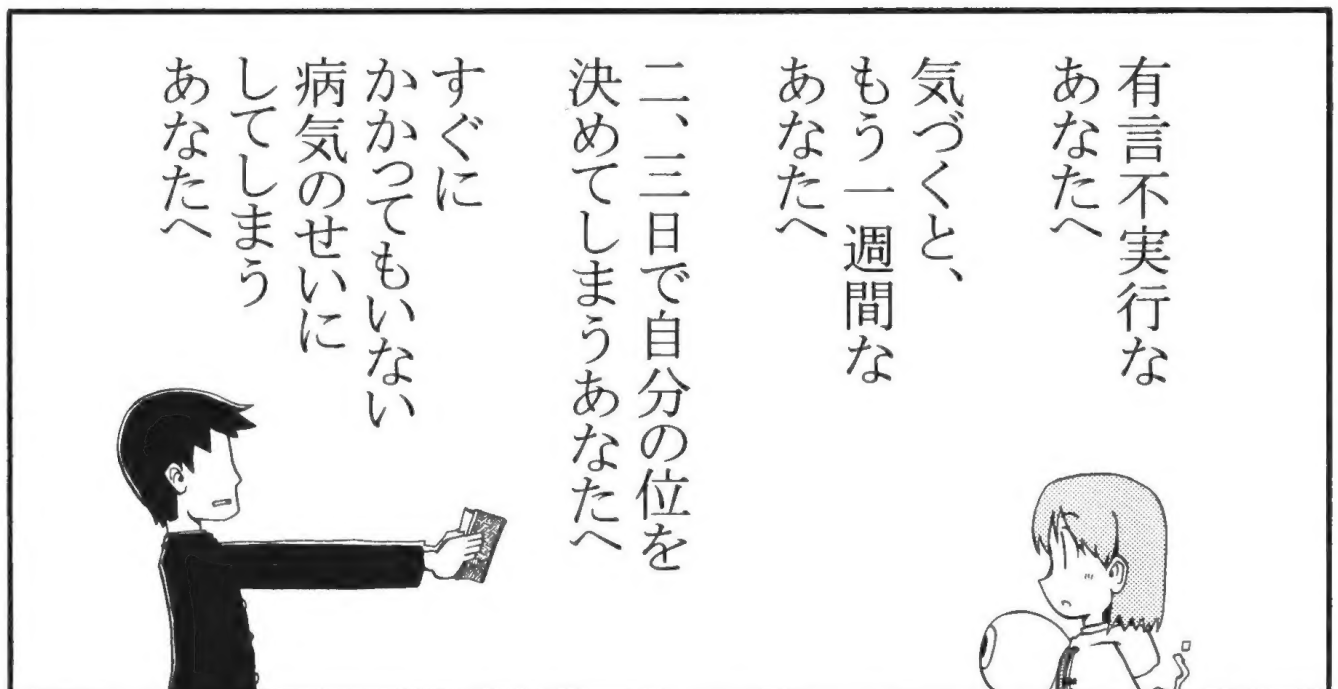 有言不実行な
あなたへ
気づくと、
もう一週間な
あなたへ
二、三日で自分の位を
決めてしまうあなたへ
すぐに
かかってもいない
病気のせいに
してしまう
あなたへ